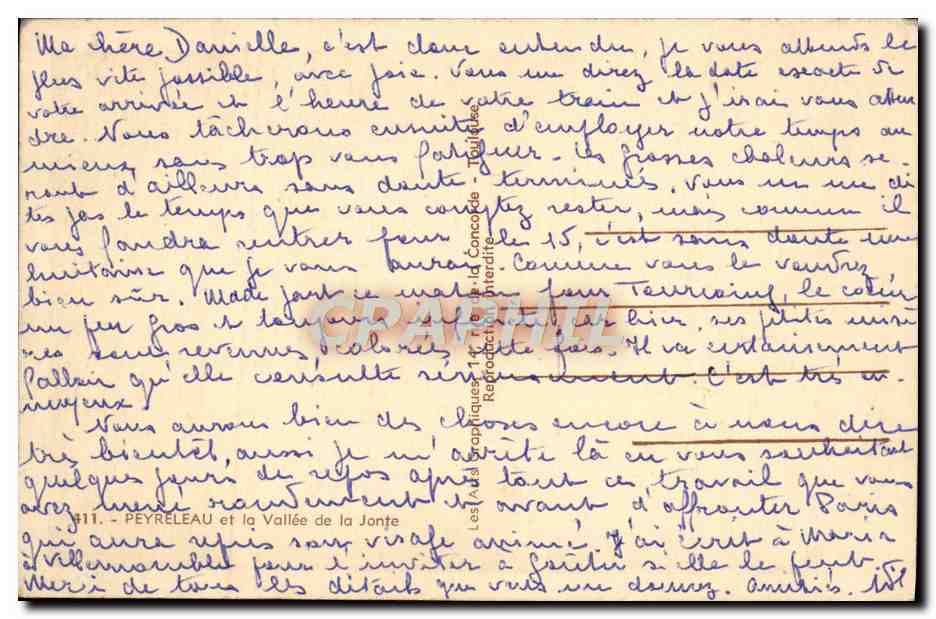 Ma chère Danielle, c'est donc entendu, je vous attends le
plus vite possible, avec joie. Vous me direz la date exacte de
votre arrivée et l'heure de votre train et j'irai vous atten
dre. Nous tâcherons ensuite d'employer notre temps au
mieux, sans trop vous fatiguer. Les grosses chaleurs se-
ront d'ailleurs sans doute terminées. Vous ne me di
tes pas le temps que vous comptez rester, mais comme il
vous faudra rentrer pour le 15, c'est sans doute une
huitaine que je vous aurai. Comme vous le voudrez,
bien sûr. Made part ce matin pour Tourcoing, le cœur
un peu gros et toujours hier, ses petites misè
res sont revenues, cette fois. Il va certainement
falloir qu'elle consulte sérieusement. C'est très en-
nuyeux.
Nous aurons bien des choses encore à nous dire
très bientôt, aussi je m'arrête là en vous souhaitant
quelques jours de repos après tout ce travail que vous
avez mené rondement et avant d'affronter Paris
411. - PEYRELEAU et la Vallée de la Jonte
qui aura repris son visage animé. J'ai écrit à Marie
à Villemomble pour l'inviter à goûter si elle le peut.
Merci de tous les détails que vous me donnez. Amitiés.
Les Arts Graphiques, de la Concorde - Toulouse
Reproduction Interdite
CRAPHIL